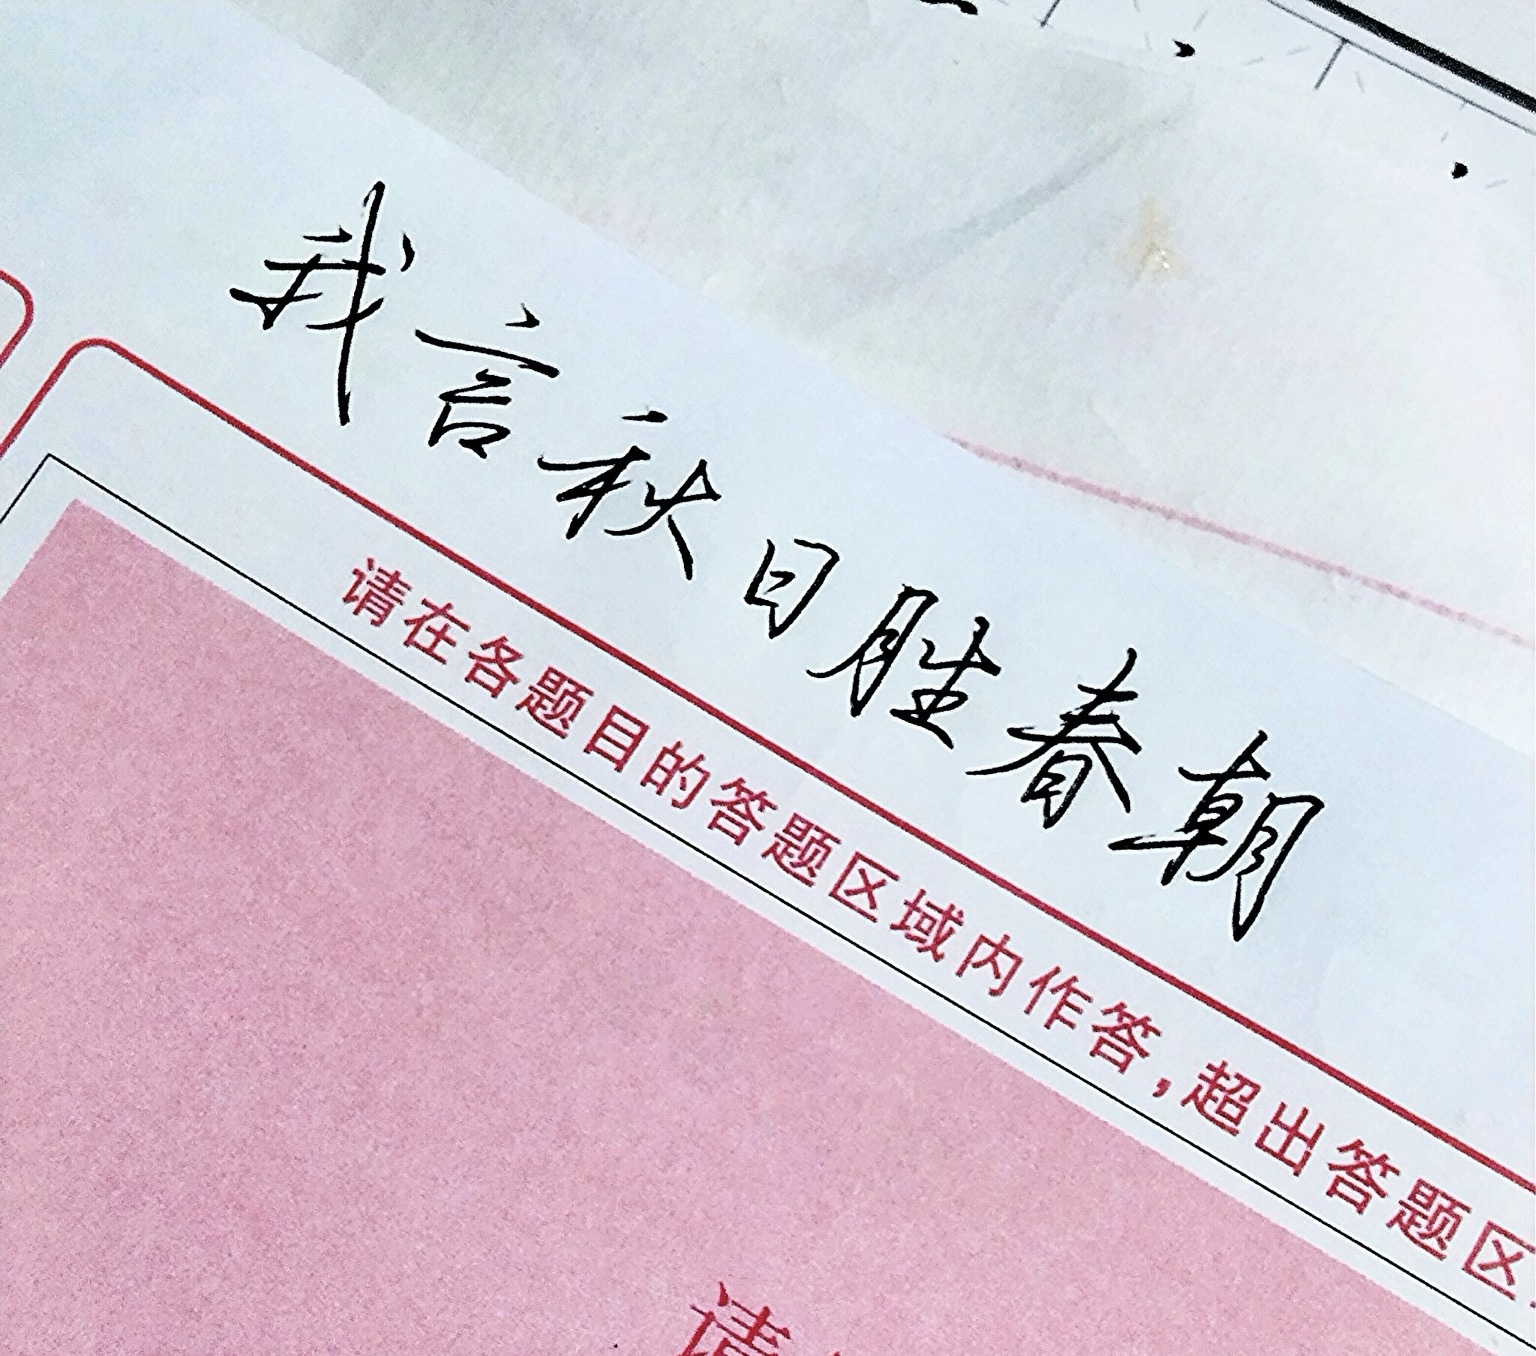 我言秋日胜春朝
请在各题目的答题区域内作答，超出答题区
请